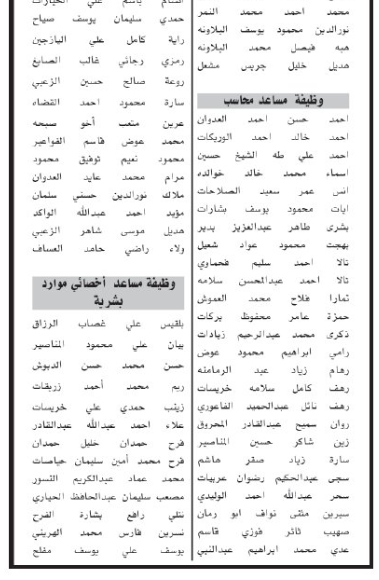 محمد احمد محمد النمر
نورالدين محمود يوسف البلاونه
هبه فيصل محمد البلاونه
هديل خليل جريس مشعل
وظيفة مساعد محاسب
احمد حسن احمد العدوان
احمد خالد احمد الوريكات
احمد علي طه الشيخ حسين
اسماء محمد خالد خوالده
انس عمر سعيد الصلاحات
ايات محمود يوسف بشارات
بشرى طاهر عبدالعزيز بدير
بهجت محمود عواد شعيل
تالا احمد سليم قحماوي
تالا احمد عبدالمحسن سلامه
تمارا فلاح محمد العموش
حمزة عامر محفوظ بركات
ذكرى محمد عبدالرحيم زيادات
رامي ابراهيم محمود عوض
رهام زياد عبد الرمامنه
رهف كامل سلامه خريسات
رهف نائل عبدالحميد الفاعوري
روان سميح عبدالقادر المحروق
زين شاكر حسين المناصير
سارة زياد صقر هاشم
سجى عبدالحكيم رضوان عربيات
سحر عبدالله احمد الوليدي
سيرين مثنى نواف ابو رمان
صهيب ثائر فوزي قاسم
عدي محمد ابراهيم عبدالنبي
باسم علي الخيارات
حمدي سليمان يوسف صباح
راية كامل علي اليازجين
رمزي رجائي غالب الصايغ
روعة صالح حسين الزعبي
سارة محمود احمد القضاه
عرين متعب أخو صبحه
محمد عوض قاسم الفواعير
محمود نعيم توفيق محمود
مرام محمد عايد العدوان
ملاك نورالدين حسني سلمان
مؤيد احمد عبدالله الواكد
هديل موسى شاهر الزعبي
ولاء راضي حامد العساف
وظيفة مساعد أخصائي موارد
بشرية
بلقيس علي غصاب الرزاق
بيان علي محمود المناصير
حسن محمد حسن الدبوش
ريم محمد أحمد زريقات
زينب حمدي علي خريسات
علاء احمد عبدالله عبدالقادر
فرح حمدان خليل حمدان
فرح محمد أمين سليمان حياصات
محمد عماد عبدالكريم النسور
مصعب سليمان عبدالحافظ الحياري
نتلي رافع بشارة الفرح
نسرين فارس محمد الهريني
يوسف علي يوسف مفلح